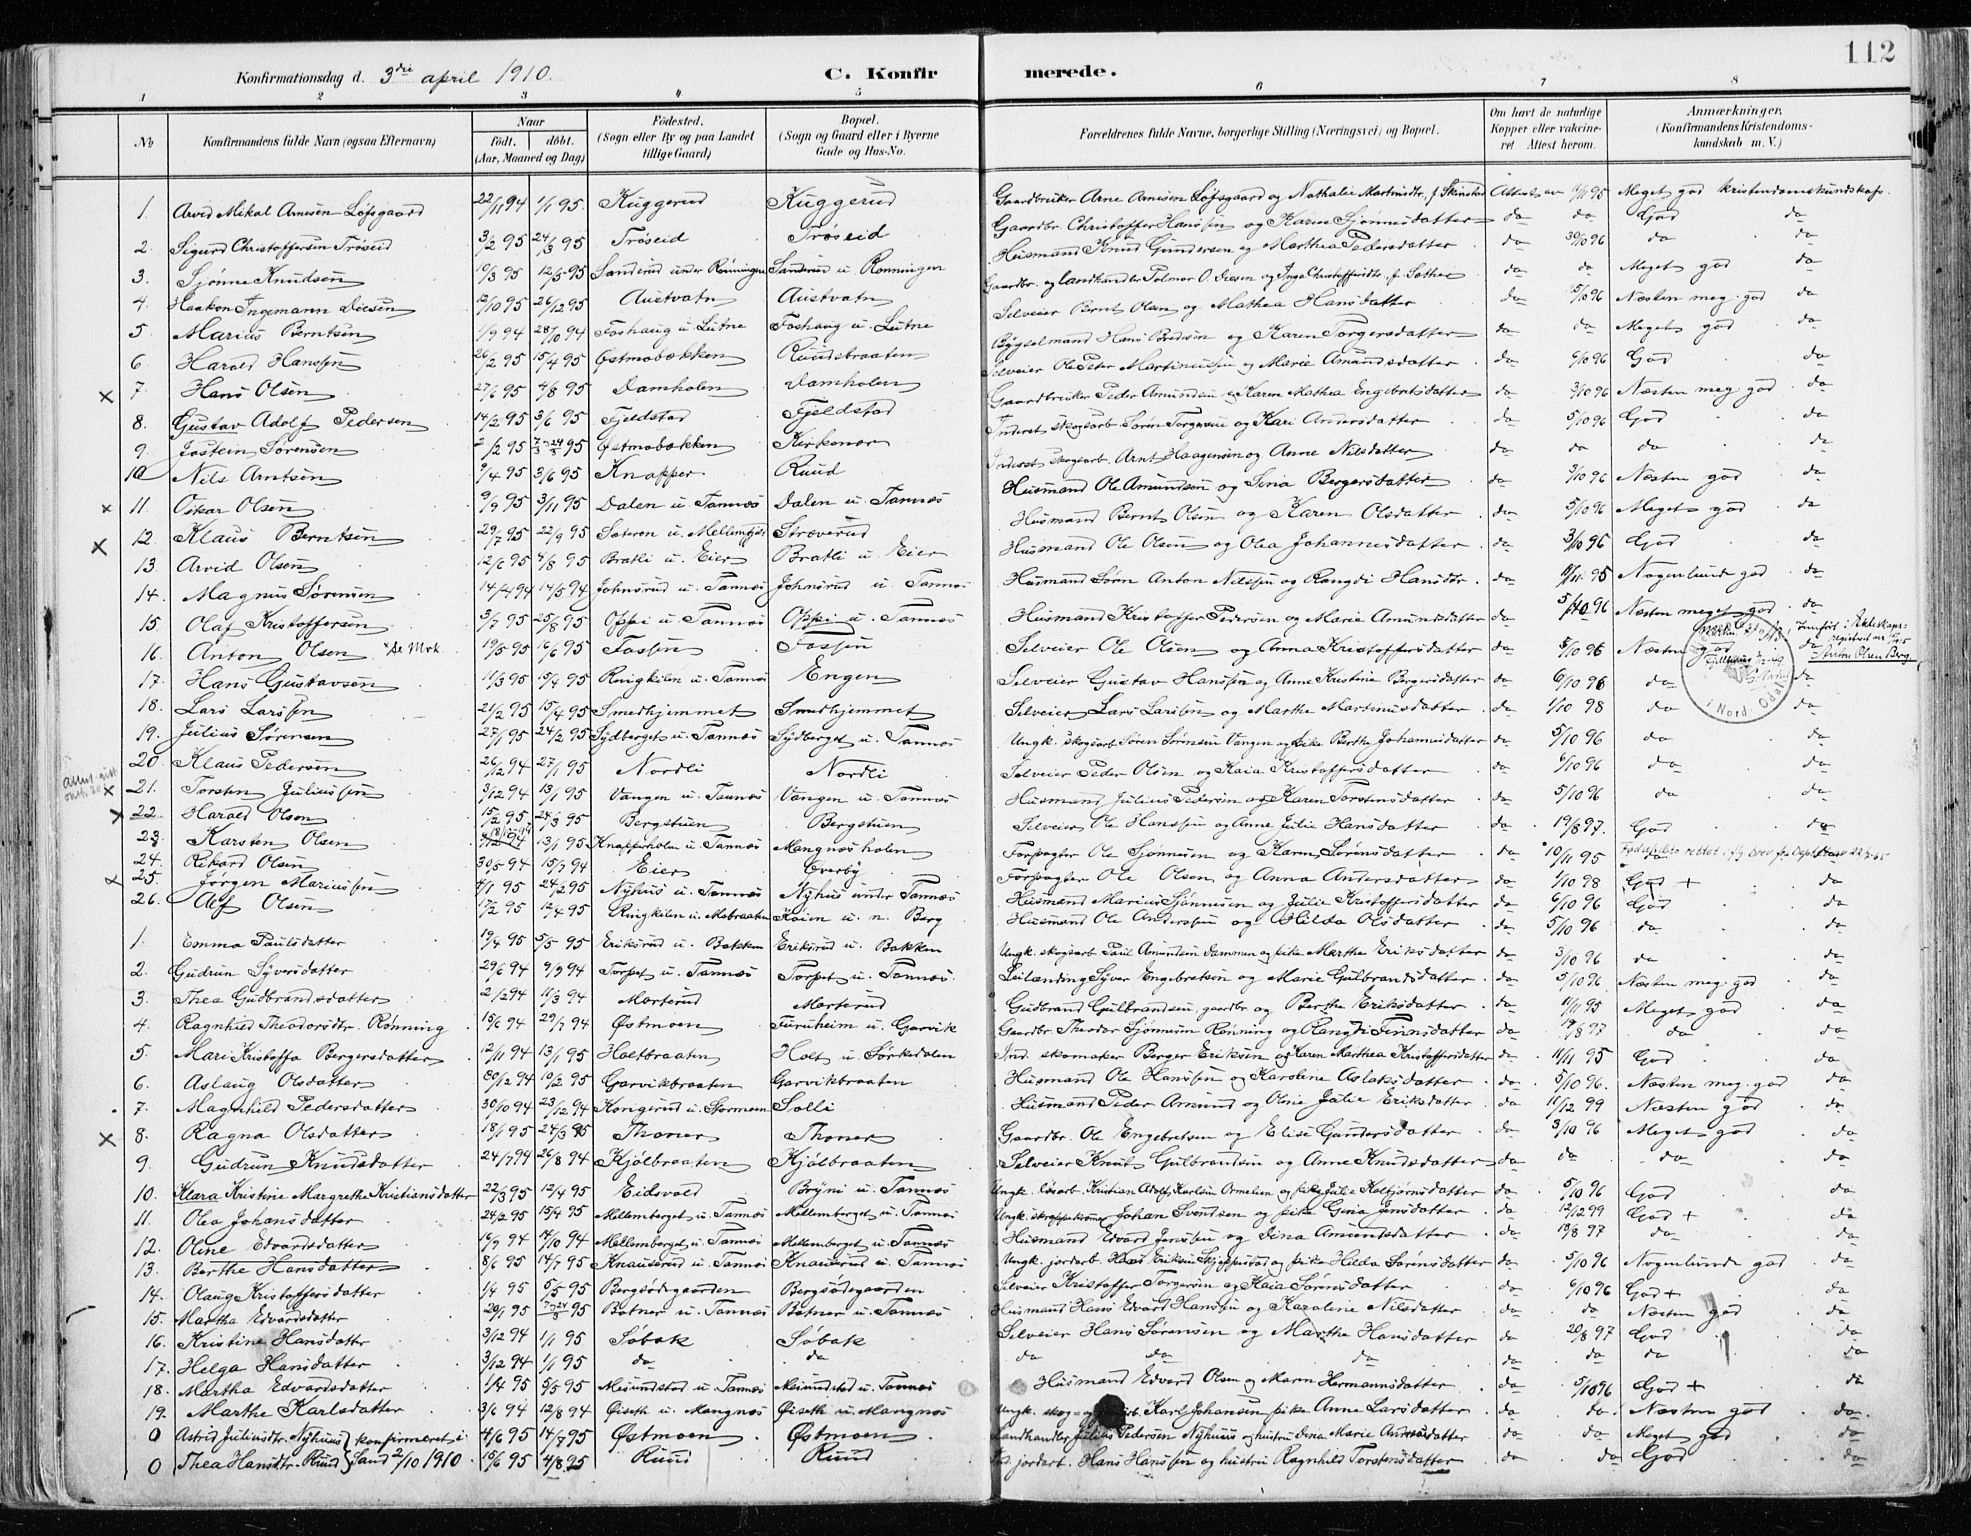 112
Konfirmationsdag d. 3die april 1910. C. Konfirmerede.
1 2 3 4 5 6 7 8
No
Konfirmandens fulde Navn (ogsaa Efternavn)
Naar
født. døbt.
(Aar, Maaned og Dag)
Fødested.
(Sogn eller By og paa Landet
tillige Gaard)
Bopæl.
(Sogn og Gaard eller i Byerne
Gade og Hus-No.
Forældrenes fulde Navne, borgerlige Stilling (Næringsvei) og Bopæl.
Om havt de naturlige
Kopper eller vakcine-
ret Attest herom.
Anmærkninger.
(Konfirmandens Kristendoms-
kundskab m. V.)
1. Arvid Mikal Arnesen Løfsgaard 22/11 94 1/1 95. Kuggerud Kuggerud Gaardbruker Arne Arnesen Løfsgaard og Nathalie Martinsdtr. f. Skinstad Attest av 11/11 95 Meget god kristendomskundskap.
2. Sigurd Christoffersen Trøseid 3/2 95 24/3 95 Trøseid Trøseid Gaardbr. Christoffer Hanssen og Karen Sjønnesdatter do do God do
3. Sjønne Knudsen 10/3 95 12/5 95 Sanderud under Rønningen Sanderud u. Rønningen Husmand Knud Gundersen og Marthea Pedersdatter do 30/10 96 do do
4. Haakon Ingemann Diesen 12/10 95 26/12 95 Austvatn Austvatn Gaardbr. og landhandler Palmar O. Diesen og Inga Christoffersdtr. f. Sæther do do Meget god do
5. Marius Berntsen 1/9 94 28/10 94 Foshaug u. Lutne Foshaug u. Lutne Selveier Bernt Olsen og Mathea Hansdatter do 5/10 96 Næsten meg. god do
6. Harald Hanssen 26/2 95 15/4 95 Østmobækken Ruudsbraaten Bygselmand Hans Bredesen og Karen Torgersdatter do do Meget god do
x 7. Hans Olsen 27/6 95 4/8 95 Damholen Damholen Selveier Ole Peter Martinussen og Marie Amundsdatter do 6/10 96 God do
8. Gustav Adolf Pedersen 14/2 95 3/6 95 Fjeldstad Fjeldstad Gaardbruker Peder Amundsen og Karen Mathea Engebretsdatter do 3/10 96 Næsten meg. god do
9. Jostein Sørensen 2/2 95 95 Østmobækken Kirkenær Inderst skogsarb. Søren Torgersen og Kari Andersdatter do 5/10 96 God do
10 Nils Arntsen 9/4 95 3/6 95 Knapper Ruud Inderst skogsarb. Arnt Haagensen og Anne Nilsdatter do do do do
x 11. Oskar Olsen 9/9 95 3/11 95 Dalen u. Tannæs Dalen u. Tannæs Husmand Ole Amundsen og Lina Bergersdatter do 3/10 96 Næsten god do
x 12. Klaus Berntsen 29/7 95 22/9 95 Sætren u. Mellemfjeld Stræverud Husmand Bernt Olsen og Karen Olsdatter do 5/10 96 Meget god do
13. Arvid Olsen 12/6 95 4/8 95 Bratli u. Eier Bratli u. Eier Husmand Ole Olsen og Olea Johannesdatter do 3/10 96 God do
14. Magnus Sørensen 14/4 94 14/5 94 Johnsrud u. Tannæs Johnsrud u. Tannæs Husmand Søren Anton Nilssen og Rangdi Hansdtr. do 11/11 95 Nogenlunde god do
15. Olaf Kristoffersen 3/7 95 25/8 95 Oppi u. Tannæs Oppi u. Tannæs Husmand Kristoffer Pedersen og Marie Amundsdatter do 5/10 96 Næsten meget god do
16. Anton Olsen "Se Mrk. 19/5 95 16/6 95 Fossen Fossen Selveier Ole Olsen og Anna Kristoffersdatter do 5/10 96 Næsten god do
Anton Olsen Berg
i Nord Odal
17. Hans Gustavsen 11/3 95 15/4 95 Ringkilen u. Tannæs Engen Selveier Gustav Hanssen og Anne Kristine Bergersdatter do 6/10 96 do do
18. Lars Larssen 21/2 95 15/4 95 Smedhjemmet Smedhjemmet Selveier Lars Larssen og Marthe Martinusdatter do 1/10 98 do do
19. Julius Sørensen 27/1 95 24/2 95 Sydberget u. Tannæs Sydberget u. Tannæs Ungk. skogsarb. Søren Sørensen Vangen og pike Berthe Johannesdatter do 5/10 96 do do
20 Klaus Pedersen 26/12 94 27/1 95 Nordli Nordli Selveier Peder Olsen og Kaia Kristoffersdatter do 6/10 96 do do
x 21. Torsten Juliussen 3/12 94 13/1 95 Vangen u. Tannæs Vangen u. Tannæs Husmand Julius Pedersen og Karen Torstensdatter do 5/10 96 do do
x 22. Harald Olsen 15/2 95 24/3 95 Bergstuen Bergstuen Selveier Ole Hanssen og Anne Julie Hansdatter do 19/8 97. God do
23. Karsten Olsen 13/1 95 Knapperholen u. Tannæs Mangnæsholen Forpagter Ole Sjønnesen og Karen Sørensdatter do 10/11 95 do
24. Rikard Olsen 30/5 94 15/7 94 Eier Overby Forpagter Ole Olsen og Anna Andersdatter do 1/10 98 God + do
x 25. Jørgen Mariussen 4/1 95 24/2 95 Nyhus u. Tannæs Nyhus under Tannæs Husmand Marius Sjønnesen og Julie Kristoffersdatter do 6/10 96 God do
26. Alf Olsen 17/2 95 12/4 95 Ringkilen u. Mobraaten Koien u. n. Berg Husmand Ole Anderssen og Hilda Olsdatter do 5/10 96 do do
1. Emma Paulsdatter 19/4 95 5/5 95 Eriksrud u. Bakken Eriksrud u. Bakken Ungk. skogsarb. Paul Amundsen Dammen og pike Marthe Eriksdatter do 3/10 96 do do
2. Gudrun Syversdatter 29/6 94 9/9 94 Torpet u. Tannæs Torpet u. Tannæs Leilænding Syver Engebretsen og Marie Gulbrandsdatter do 5/10 96 Næsten meg. god do
3. Thea Gudbrandsdatter 2/12 94 11/3 94 Marterud Marterud Gudbrand Gulbrandsen gaardbr. og Berthe Eriksdatter do 11/11 95 Meget god do
4. Ragnhild Theodorsdtr. Rønning 15/6 94 29/7 94 Østmoen Furuheim u. Garvik Gaardbr. Theodor Sjønnesen Rønning og Rangdi Finnsdatter do 19/8 97 do do
5. Mari Kristoffa Bergersdatter 12/11 94 13/1 95 Holtbraaten Holt u. Sørkedalen Ind. skomaker Berger Eriksen og Karen Marthea Kristoffersdatter do 11/11 95 God do
6. Aslaug Olsdatter 30/12 94 10/2 95 Garvikbraaten Garvikbraaten Husmand Ole Hanssen og Karoline Aslaksdatter do 5/10 96. Næsten meg. god do
7. Magnhild Pedersdatter 30/10 94 23/12 94 Kongerud u. Stormoen Solli Husmand Peder Amund og Oline Julie Eriksdatter do 11/12 99 Næsten god do
x 8. Ragna Olsdatter 18/1 95 24/3 95 Thoner Thoner Gaardbr. Ole Engebretsen og Elise Gundersdatter do 3/10 96 Meget god do
9. Gudrun Knudsdatter 24/7 94 26/8 94 Kjølbraaten Kjølbraaten Selveier Knut Gulbrandsen og Anne Knudsdatter do do do do
10. Klara Kristine Margrethe Kristiansdatter 22/3 95 12/4 95 Eidsvold Bryni u. Tannæs Ungk. løsarb. Kristian Adolf Karlsen Ormelien og pike Julie Kolbjørnsdatter do 5/10 96 God do
11. Olea Johansdatter 24/2 95 15/4 95 Mellemberget u. Tannæs Mellemberget u. Tannæs Ungk. skreppekræmer Johan Svendsen og pike Gina Jensdatter do 12/12 99 God + do
12. Oline Edvardsdatter 16/9 94 14/10 94 Mellemberget u. Tannæs Mellemberget u. Tannæs Husmand Edvard Jenssen og Dina Amundsdatter do 19/8 97 do do
13. Berthe Hansdatter 8/6 95 14/7 95 Knauserud u. Tannæs Knauserud u. Tannæs Ungk. jordarb. Hans Eriksen og pike Hilda Sørensdatter do 5/10 96 Nogenlunde god do
14. Olaug Kristoffersdatter 1/4 95 5/5 95 Bergsødegaarden Bergsødegaarden Selveier Kristoffer Torgersen og Kaia Sørensdatter do 6/10 96 God + do
15. Martha Edvardsdatter 20/1 95 95 Botner u. Tannæs Botner u. Tannæs Husmand Hans Edvard Hanssen og Karoline Nilsdatter do do Næsten god do
16. Kristine Hansdatter 3/12 94 1/1 95 Søbak Søbak Selveier Hans Sørensen og Marthe Hansdatter do 20/8 97 God do
17. Helga Hansdatter 3/12 94 1/1 95 do do do do do do do do do
18. Martha Edvardsdatter 1/4 95 5/5 95 Mesundstad u. Tannæs Mesundstad u. Tannæs Husmand Edvard Olsen og Maren Hermannsdatter do 5/10 96 God + do
19. Marthe Karlsdatter 3/6 94 12/8 94 Øiseth u. Mangnæs Øiseth u. Mangnæs Karl Johansen pike Anne Larsdatter do do Næsten god do
0 Astrid Juliusdtr. Nyhuus } konfirmeret i 4/6 95 14/7 95 Østmoen Østmoen Landhandler Julius Pedersen Nyhuus og hustru Dina Marie Andreasdatter do do Meget god do
0 Thea Hansdtr. Ruud } Sand 2/10 1910. 15/6 95 4/8 95 Ruud Ruud Ind. jordarb. Hans Hanssen og hustru Ragnhild Torstensdatter do do God do